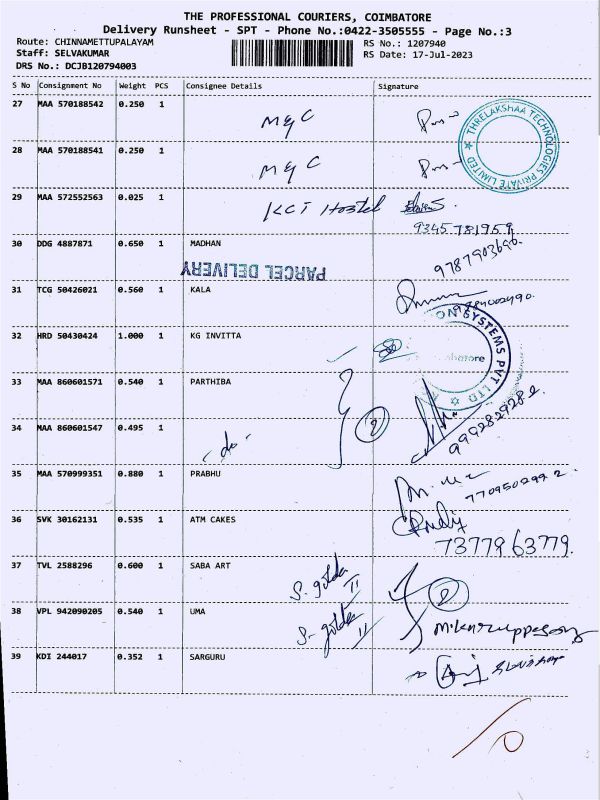 THE PROFESSIONAL COURIERS, COIMBATORE
Delivery Runsheet - SPT - Phone No.:0422-3505555 - Page No.:3
Route: CHINNAMETTUPALAYAM
Staff: SELVAKUMAR
DRS No.: DCJB120794003
RS No.: 1207940
RS Date: 17-Jul-2023
S No Consignment No Weight PCS Consignee Details Signature
27 MAA 570188542 0.250 1 M & C
THRELAKSHAA TECHNOLOGIES PRIVATE LIMITED
28 MAA 570188541 0.250 1 M & C
29 MAA 572552563 0.025 1 KCT Hostel
9345781959
30 DDG 4887871 0.650 1 MADHAN 9787903690.
PARCEL DELIVERY
31 TCG 50426021 0.560 1 KALA
32 HRD 50430424 1.000 1 KG INVITTA
ON SYSTEMS PVT LTD
33 MAA 860601571 0.540 1 PARTHIBA
34 MAA 860601547 0.495 1 - do - 2
35 MAA 570999351 0.880 1 PRABHU
36 SVK 30162131 0.535 1 ATM CAKES
7377963779.
37 TVL 2588296 0.600 1 SABA ART
38 VPL 942090205 0.540 1 UMA
2
39 KDI 244017 0.352 1 SARGURU